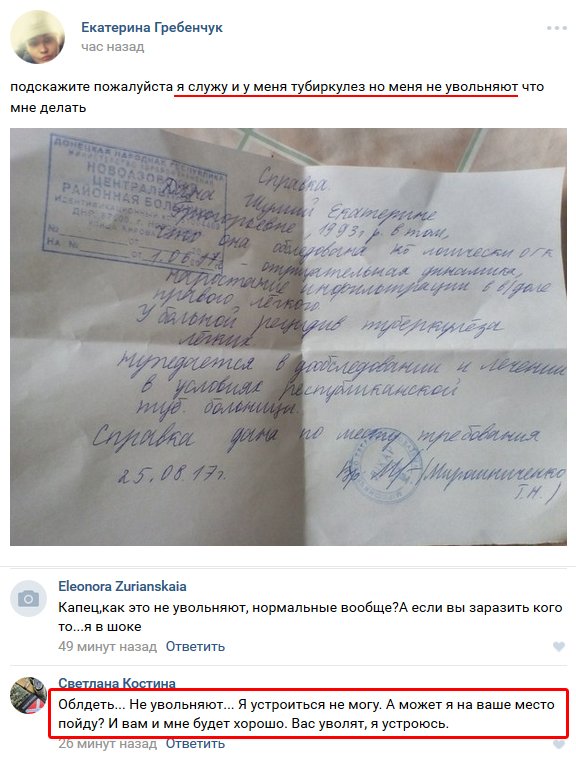 Екатерина Гребенчук
час назад
подскажите пожалуйста я служу и у меня тубиркулез но меня не увольняют что
мне делать
ДОНЕЦКАЯ НАРОДНАЯ РЕСПУБЛИКА
НОВОАЗОВСКАЯ
ЦЕНТРАЛЬНАЯ
РАЙОННАЯ БОЛЬНИЦА
Справка.
Дана
Екатерине
Григорьевне, 1993г.р. в том,
что она обследована
1.06.17г.
отрицательная динамика,
нарастание инфильтрации в в/доле
правого лёгкого
У больной рецидив туберкулёза
лёгких
нуждается в дообследовании и лечении
в условиях республиканской
туб. больницы.
Справка дана по месту требования
25.08.17г.
Вр. (Мирошниченко
Т.Н.)
Eleonora Zurianskaia
Капец,как это не увольняют, нормальные вообще?А если вы заразить кого
то...я в шоке
49 минут назад Ответить
Светлана Костина
Облдеть... Не увольняют... Я устроиться не могу. А может я на ваше место
пойду? И вам и мне будет хорошо. Вас уволят, я устроюсь.
26 минут назад Ответить